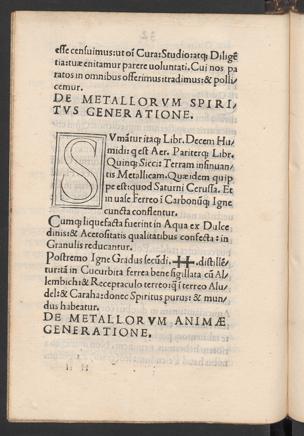 esse censuimus: ut oı̄ Cura: Studio: atq; Diligē
tia: tuæ enitamur parere uoluntati. Cui nos pa
ratos in omnibus offerimus: tradimus: & polli
cemur.
DE METALLORVM SPIRI,
TVS GENERATIONE.
SVmātur itaq; Libr. Decem Hu
midi: q est Aer. Pariterq; Libr.
Quinq; Sicci: Terram insinuan
tis Metallicam. Quæ idem quip
pe est: quod Saturni Cerussa. Et
in uase Ferreo ī Carbonūq; Igne
cuncta conflentur.
Cumq; liquefacta fuerint in Aqua ex Dulce
dinis: & Acetositatis qualitatibus confecta: in
Granulis reducantur.
Postremo Igne Gradus secūdi. distille,
turītā in Cucurbita ferrea bene sigillata cū Al
lembichi: & Receptaculo terreo: q̄ ī terreo Alu
del: & Caraha: donec Spiritus purus: & mun
dus habeatur.
DE METALLORVM ANIMÆ
GENERATIONE,